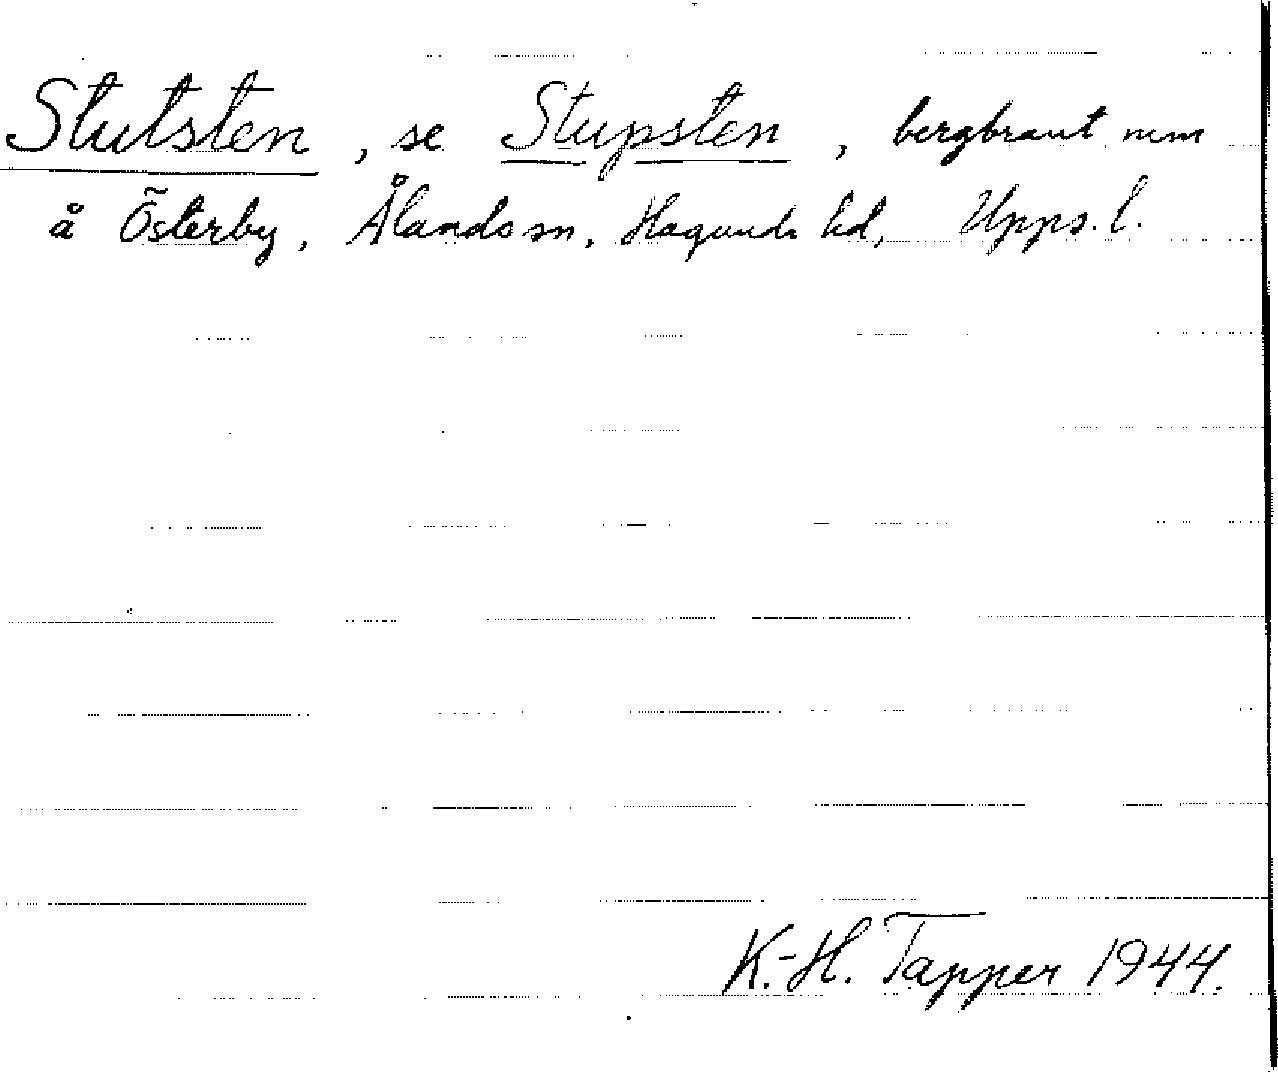 Stutsten, se Stupsten, bergbrant
å Österby, Ålands sn, Hagunda hd, Upps. l.
K.-H. Tapper 1944.